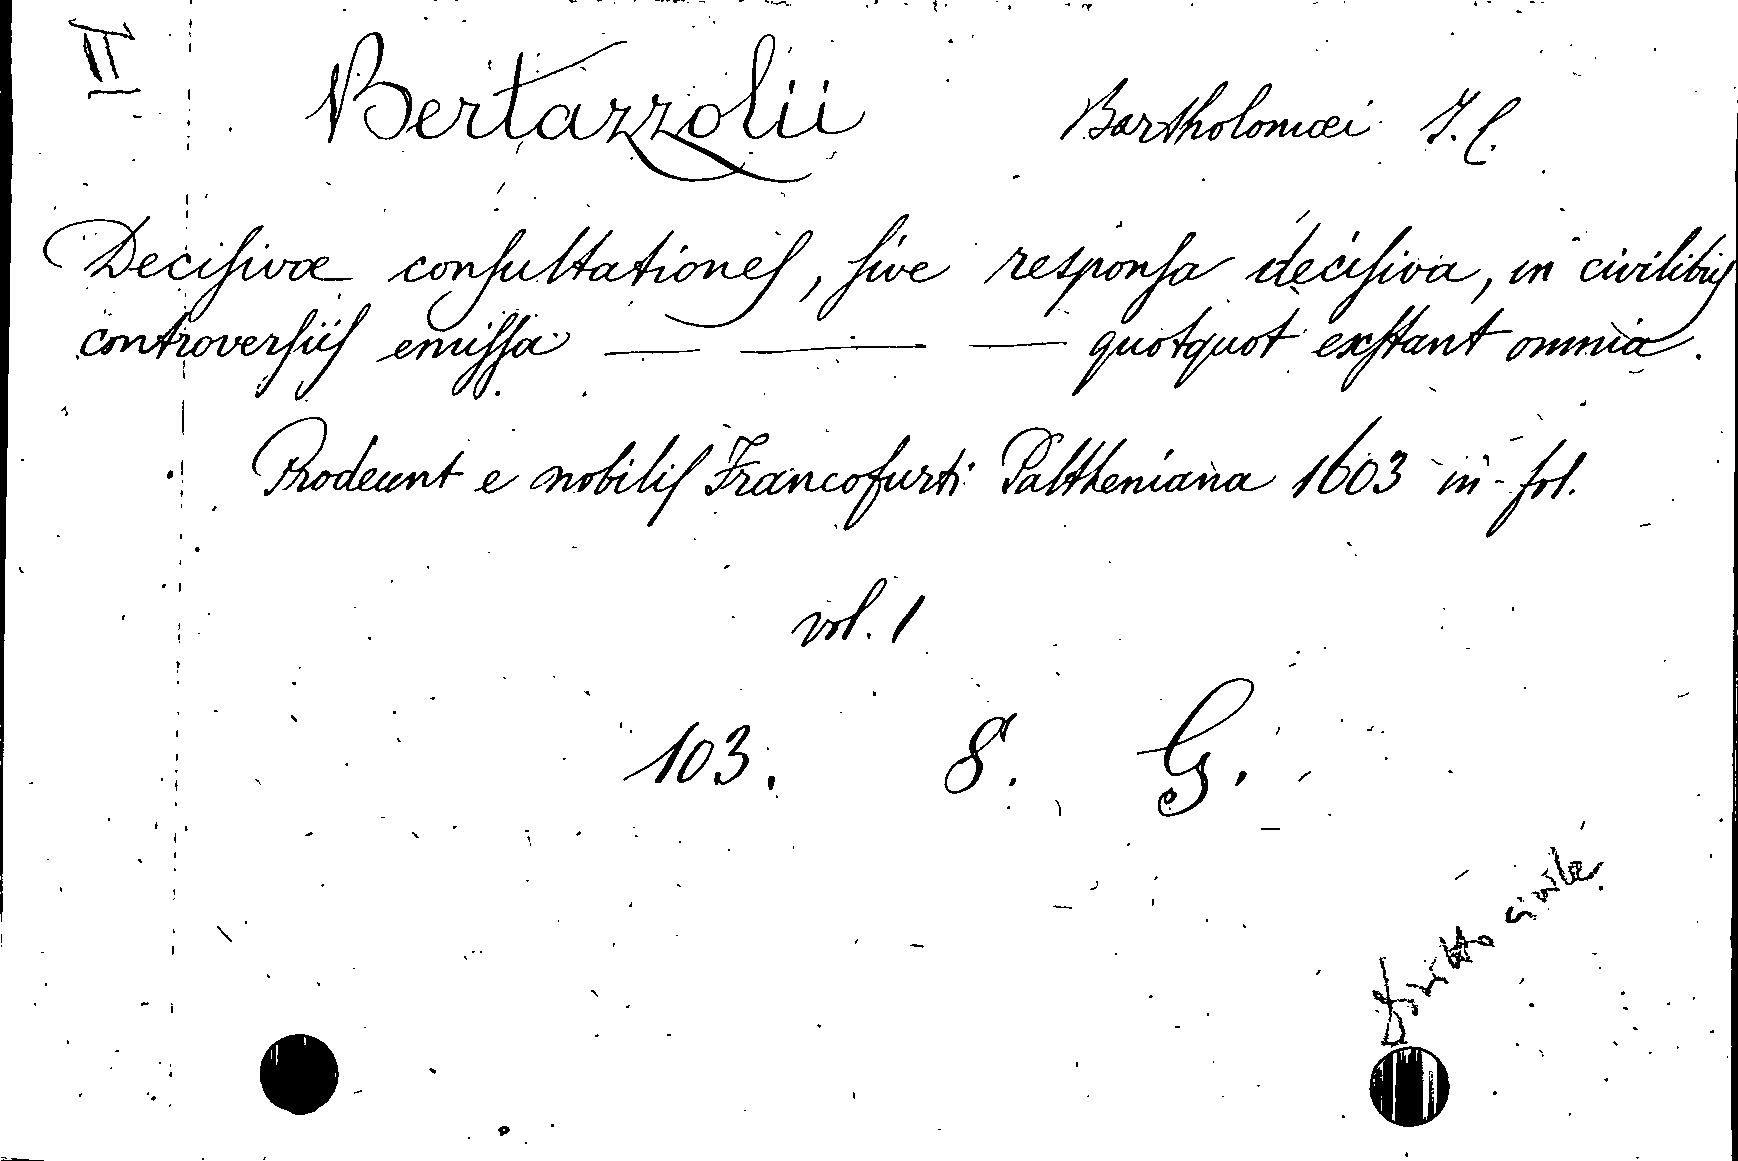 II
Bertazzolii Bartholomæi J. C.
Decisivæ consultationes, sive responsa decisiva, in civilibus
controversiis emissa — — — quotquot exstant omnia.
Prodeunt e nobilis Francofurti Paltheniana 1603 in-fol.
vol. 1
103. 8. G.
Diritto civile